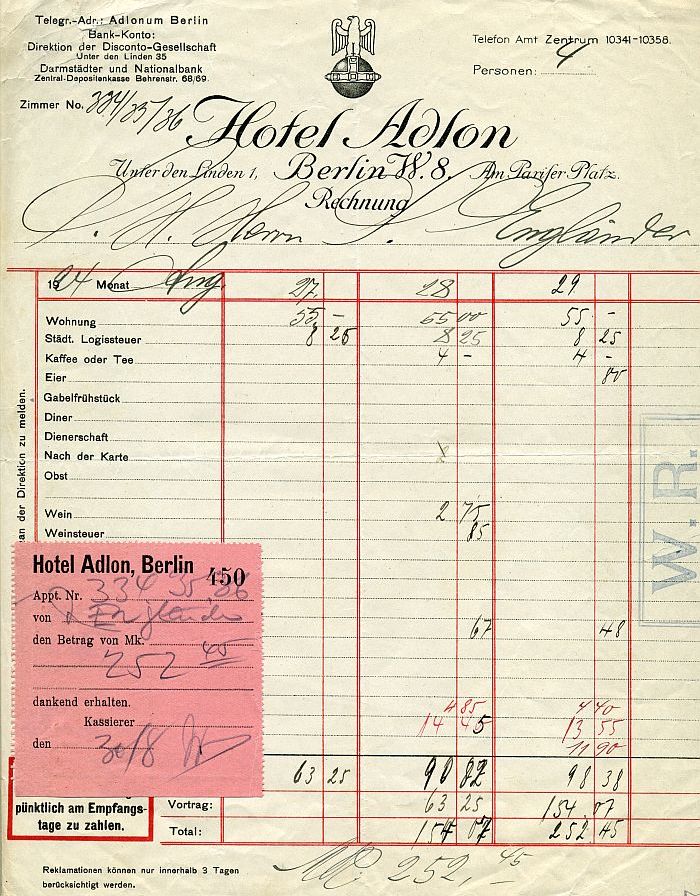 Telegr.-Adr.: Adlonum Berlin
Bank-Konto:
Direktion der Disconto-Gesellschaft
Unter den Linden 35
Darmstädter und Nationalbank
Zentral-Depositenkasse Behrenstr. 68/69.
Telefon Amt Zentrum 10341-10358.
Personen: 4
Zimmer No. 334/35/36
Hotel Adlon
Unter den Linden 1, Berlin W. 8. Am Pariser Platz.
Rechnung
S. H. Herrn S. Engländer
1924 Monat Aug. 27. 28 29
Wohnung 55 - 55 00 55 -
Städt. Logissteuer 8 25 8 25 8 25
Kaffee oder Tee 4 - 4 -
Eier 80
Gabelfrühstück
Diner
Dienerschaft
Nach der Karte
Obst
Wein 2 75
Weinsteuer 85
an der Direktion zu melden.
W.R.
Hotel Adlon, Berlin 450
Appt. Nr. 334 35 36
von Engländer
den Betrag von Mk.
252 45
dankend erhalten.
Kassierer
den 30/8
67 48
4 85 4 40
14 45 13 55
11 90
63 25 90 82 98 38
pünktlich am Empfangs-
tage zu zahlen.
Vortrag: 63 25 154 07
Total: 154 07 252 45
Reklamationen können nur innerhalb 3 Tagen
berücksichtigt werden.
Mk. 252,45